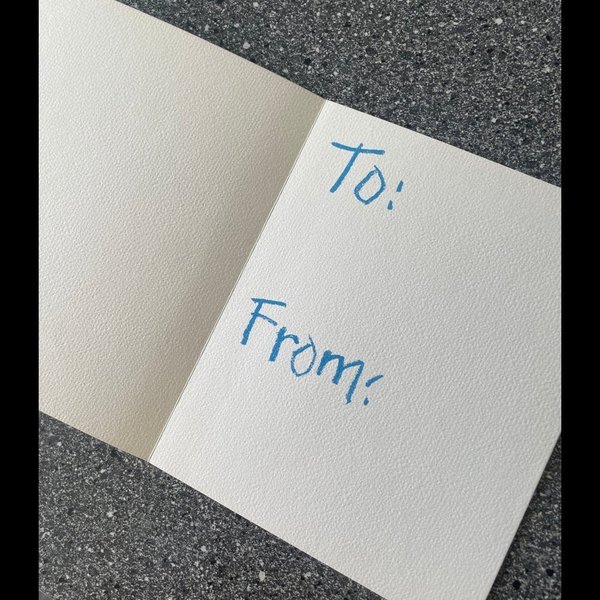 To:
From: